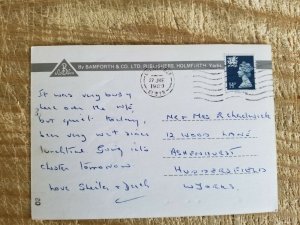 By BAMFORTH & CO. LTD. PUBLISHERS, HOLMFIRTH Yorks.
It was very busy
here over the
but quiet today,
been very wet since
lunchtime. Going into
chester tomorrow
Love Sheila &
Mr & Mrs R
12 WOOD LANE
ASHENHURST
HUDDERSFIELD
W YORKS